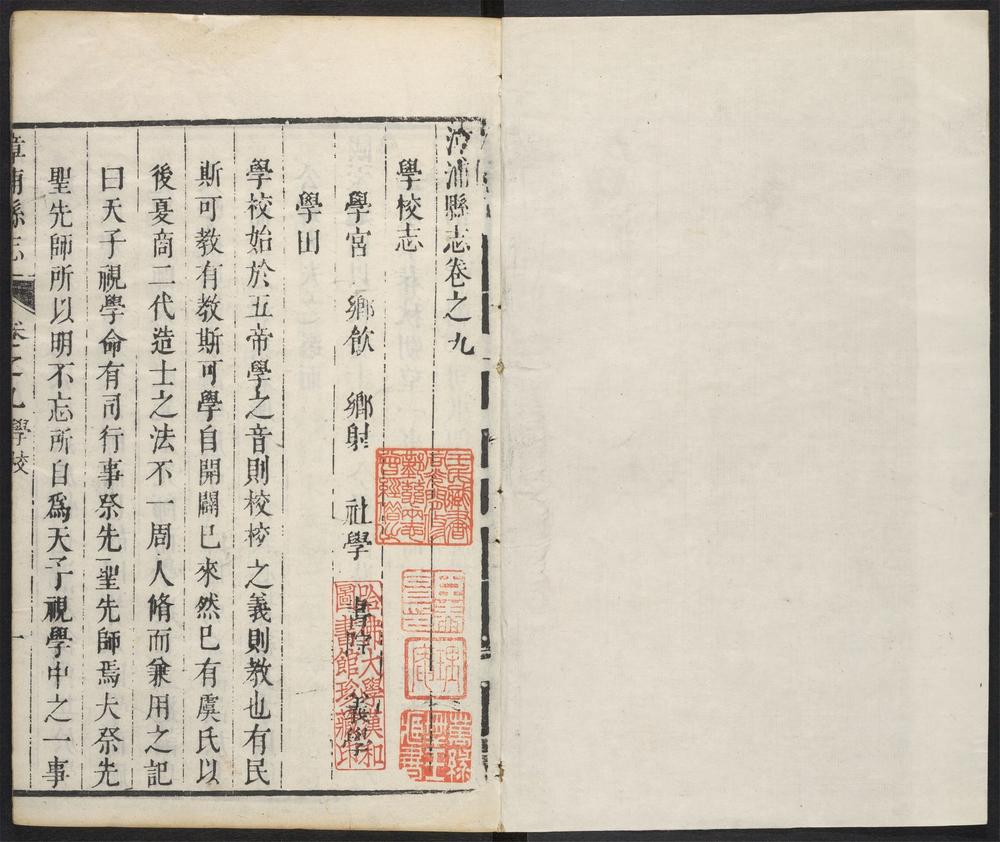 漳浦縣志卷之九
學校志
學宮 鄉飲 鄉射 社學 書院 義學
學田
學校始於五帝學之音則校校之義則教也有民
斯可教有教斯可學自開闢已來然已有虞氏以
後夏商二代造士之法不一周人脩而兼用之記
曰天子視學命有司行事祭先聖先師焉夫祭先
聖先師所以明不忘所自爲天子視學中之一事
漳浦縣志 卷之九 學校 一
哈佛大學漢和圖書館珍藏印